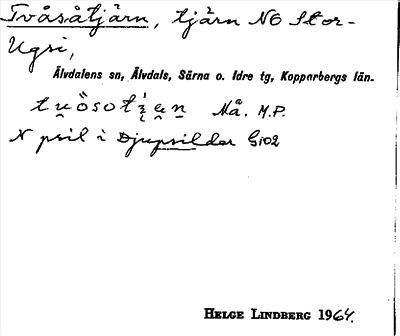 Tvåsåtjärn, tjärn NO Stor-
Ugsi,
Älvdalens sn, Älvdals, Särna o. Idre tg, Kopparbergs län.
Må. M.P.
N psil i Djupsildar G102
HELGE LINDBERG 1964.